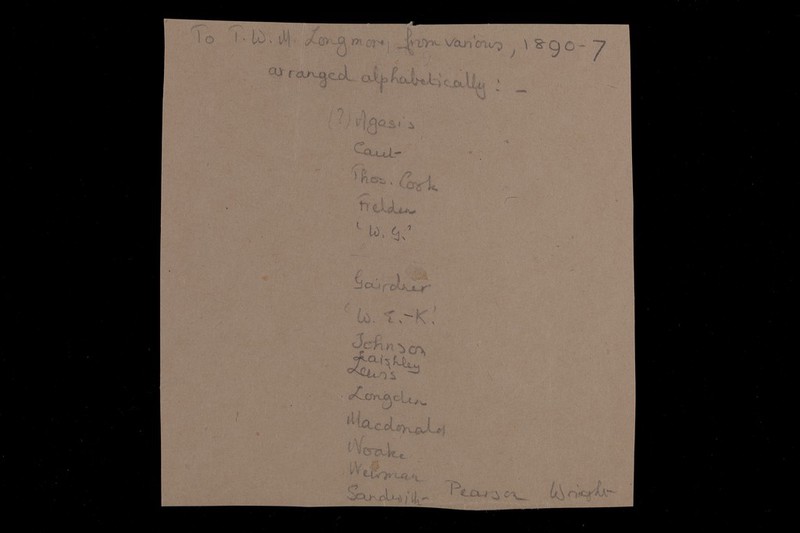 To T.W.M. Longmore, from various, 1890-7
arranged alphabetically : -
(?) Agasis
Caut
Thos. Cook
Fielden
'W. G.'
Gairdner
'W. E.-K.'
Johnson
Laishley
Lewis
Longden
Macdonald
Noake
Newman
Sandwith Pearson Wright